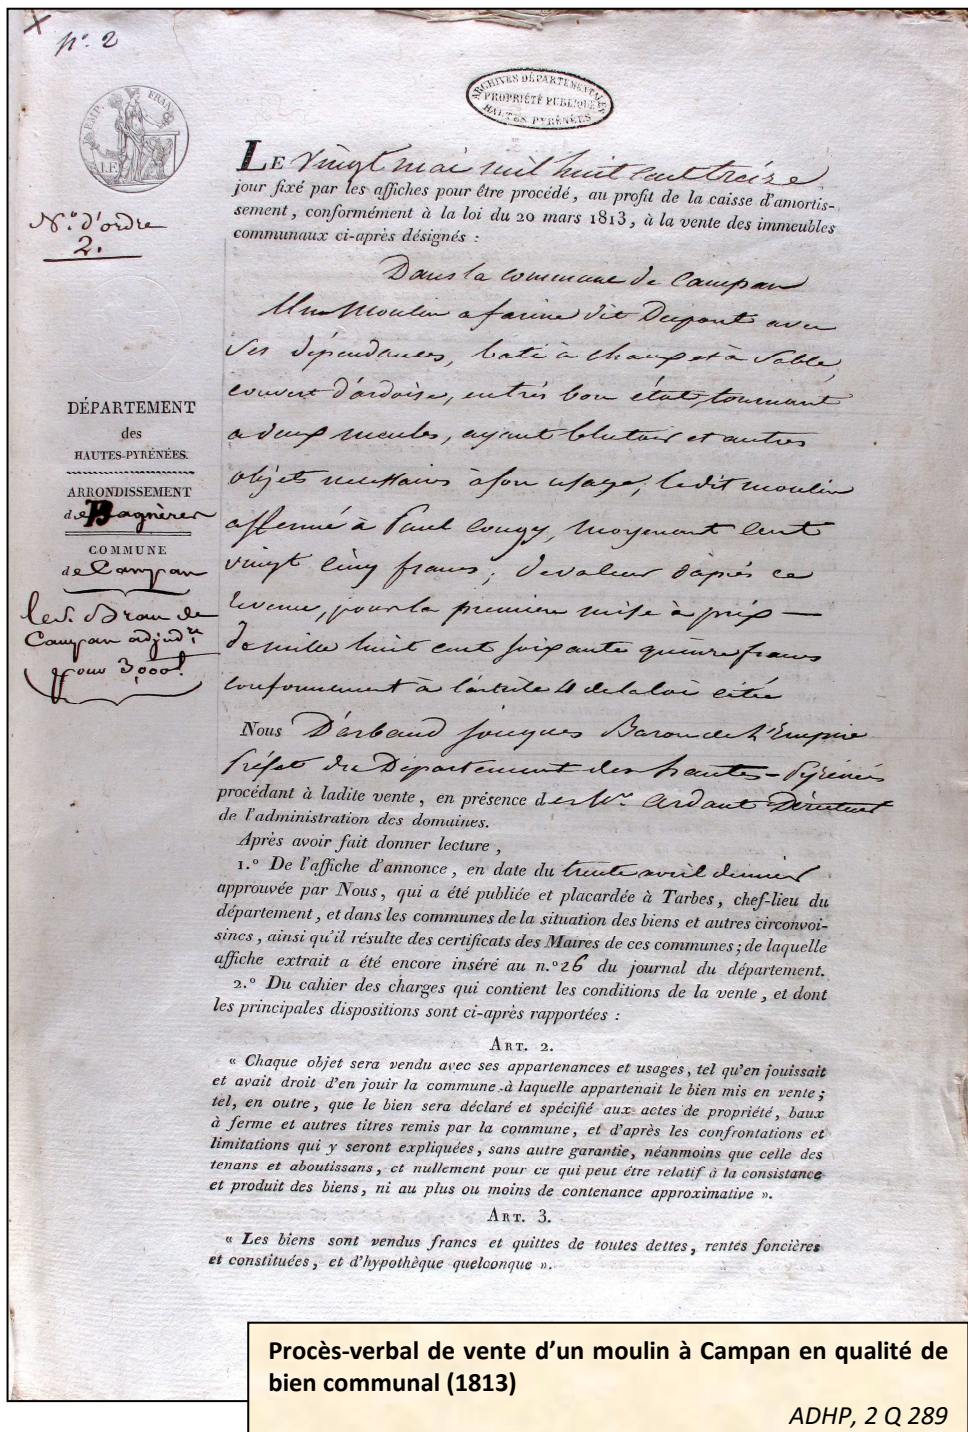 N.° 2
ARCHIVES DÉPARTEMENTALES
PROPRIÉTÉ PUBLIQUE
HAUTES PYRÉNÉES
EMP. FRANÇ.
N.° d'ordre
2.
DÉPARTEMENT
des
HAUTES-PYRÉNÉES.
ARRONDISSEMENT
de Bagnères
COMMUNE
de Campan
le S.r Brau de
Campan adjud.re
pour 3,000f.
LE vingt mai mil huit cent treize,
jour fixé par les affiches pour être procédé, au profit de la caisse d'amortis-
sement, conformément à la loi du 20 mars 1813, à la vente des immeubles
communaux ci-après désignés :
Dans la commune de Campan
Un Moulin a farine dit Dupont avec
ses dépendances, bati à chaux et à sable,
couvert d'ardoise, en très bon état, tournant
a deux meules, ayant blutoir et autres
objets necessaires à son usage; ledit moulin
affermé à Paul Cougy, moyenant cent
vingt cinq francs; de valeur d'après ce
revenu, pour la premiere mise à prix —
de mille huit cent soixante quinze francs
conformement à l'article 4 de la loi citée
Nous D'arbaud Jouques Baron de l'Empire
Préfet du Département des hautes-Pyrénées
procédant à ladite vente, en présence de Mr. Ardant Directeur
de l'administration des domaines.
Après avoir fait donner lecture,
1.° De l'affiche d'annonce, en date du trente avril dernier
approuvée par Nous, qui a été publiée et placardée à Tarbes, chef-lieu du
département, et dans les communes de la situation des biens et autres circonvoi-
sines, ainsi qu'il résulte des certificats des Maires de ces communes; de laquelle
affiche extrait a été encore inséré au n.° 26 du journal du département.
2.° Du cahier des charges qui contient les conditions de la vente, et dont
les principales dispositions sont ci-après rapportées :
ART. 2.
« Chaque objet sera vendu avec ses appartenances et usages, tel qu'en jouissait
et avait droit d'en jouir la commune à laquelle appartenait le bien mis en vente;
tel, en outre, que le bien sera déclaré et spécifié aux actes de propriété, baux
à ferme et autres titres remis par la commune, et d'après les confrontations et
limitations qui y seront expliquées, sans autre garantie, néanmoins que celle des
tenans et aboutissans, et nullement pour ce qui peut être relatif à la consistance
et produit des biens, ni au plus ou moins de contenance approximative ».
ART. 3.
« Les biens sont vendus francs et quittes de toutes dettes, rentes foncières
et constituées, et d'hypothèque quelconque ».
Procès-verbal de vente d'un moulin à Campan en qualité de
bien communal (1813)
ADHP, 2 Q 289